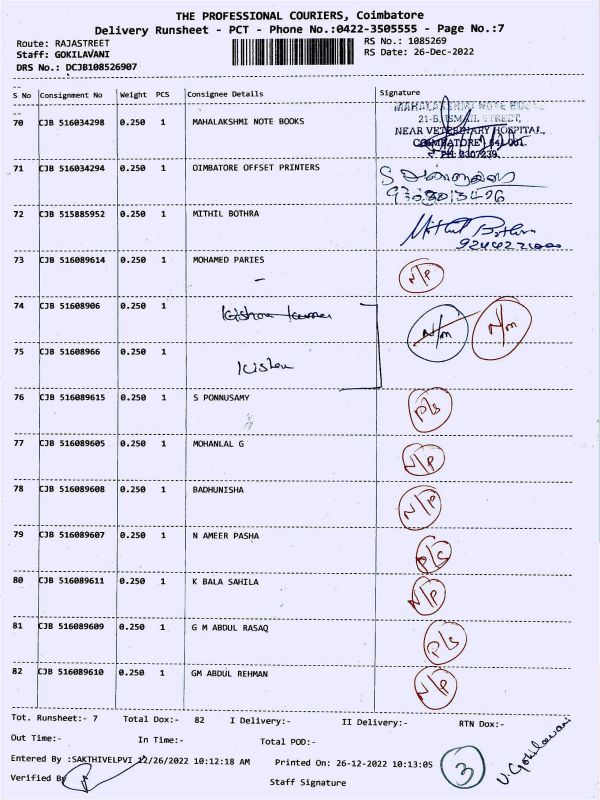 THE PROFESSIONAL COURIERS, Coimbatore
Delivery Runsheet - PCT - Phone No.:0422-3505555 - Page No.:7
Route: RAJASTREET
RS No.: 1085269
Staff: GOKILAVANI
RS Date: 26-Dec-2022
DRS No.: DCJB108526907
S No Consignment No Weight PCS Consignee Details Signature
70 CJB 516034298 0.250 1 MAHALAKSHMI NOTE BOOKS
MAHALAKSHMI NOTE BOOKS
21-B, ISMAIL STREET,
NEAR VETERINARY HOSPITAL,
COIMBATORE - 641 001.
PH: 2307239
71 CJB 516034294 0.250 1 OIMBATORE OFFSET PRINTERS
72 CJB 515885952 0.250 1 MITHIL BOTHRA
Mithil Bothra
73 CJB 516089614 0.250 1 MOHAMED PARIES N/P
74 CJB 51608906 0.250 1 Kishor kumar N/m N/m
75 CJB 51608966 0.250 1 Kishor
76 CJB 516089615 1 0.250 1 S PONNUSAMY P/s
77 CJB 516089605 0.250 1 MOHANLAL G N/P
78 CJB 516089608 0.250 1 BADHUNISHA N/P
79 CJB 516089607 0.250 1 N AMEER PASHA P/c
80 CJB 516089611 0.250 1 K BALA SAHILA N/P
81 CJB 516089609 0.250 1 G M ABDUL RASAQ P/s
82 CJB 516089610 0.250 1 GM ABDUL REHMAN N/P
Tot. Runsheet:- 7 Total Dox:- 82 I Delivery:- II Delivery:- RTN Dox:-
Out Time:- In Time:- Total POD:-
Entered By :SAKTHIVELPVI 12/26/2022 10:12:18 AM Printed On: 26-12-2022 10:13:05
Verified By Staff Signature
3
V. Gokilavani